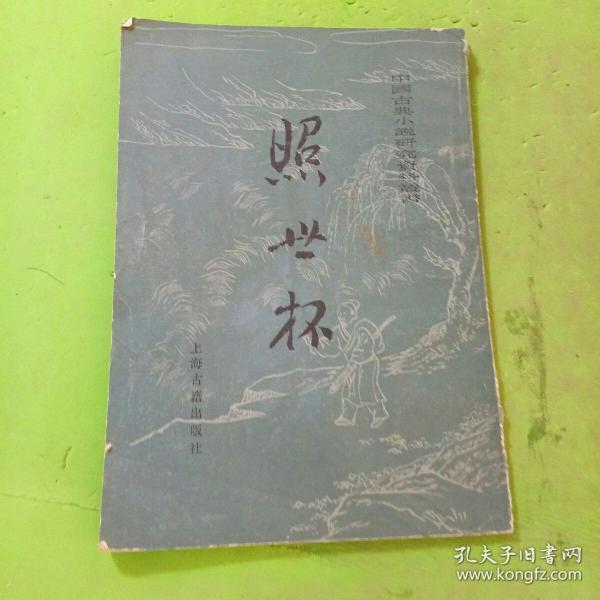 中國古典小說研究資料叢書
照世杯
上海古籍出版社
孔夫子旧书网
www.kongfz.com